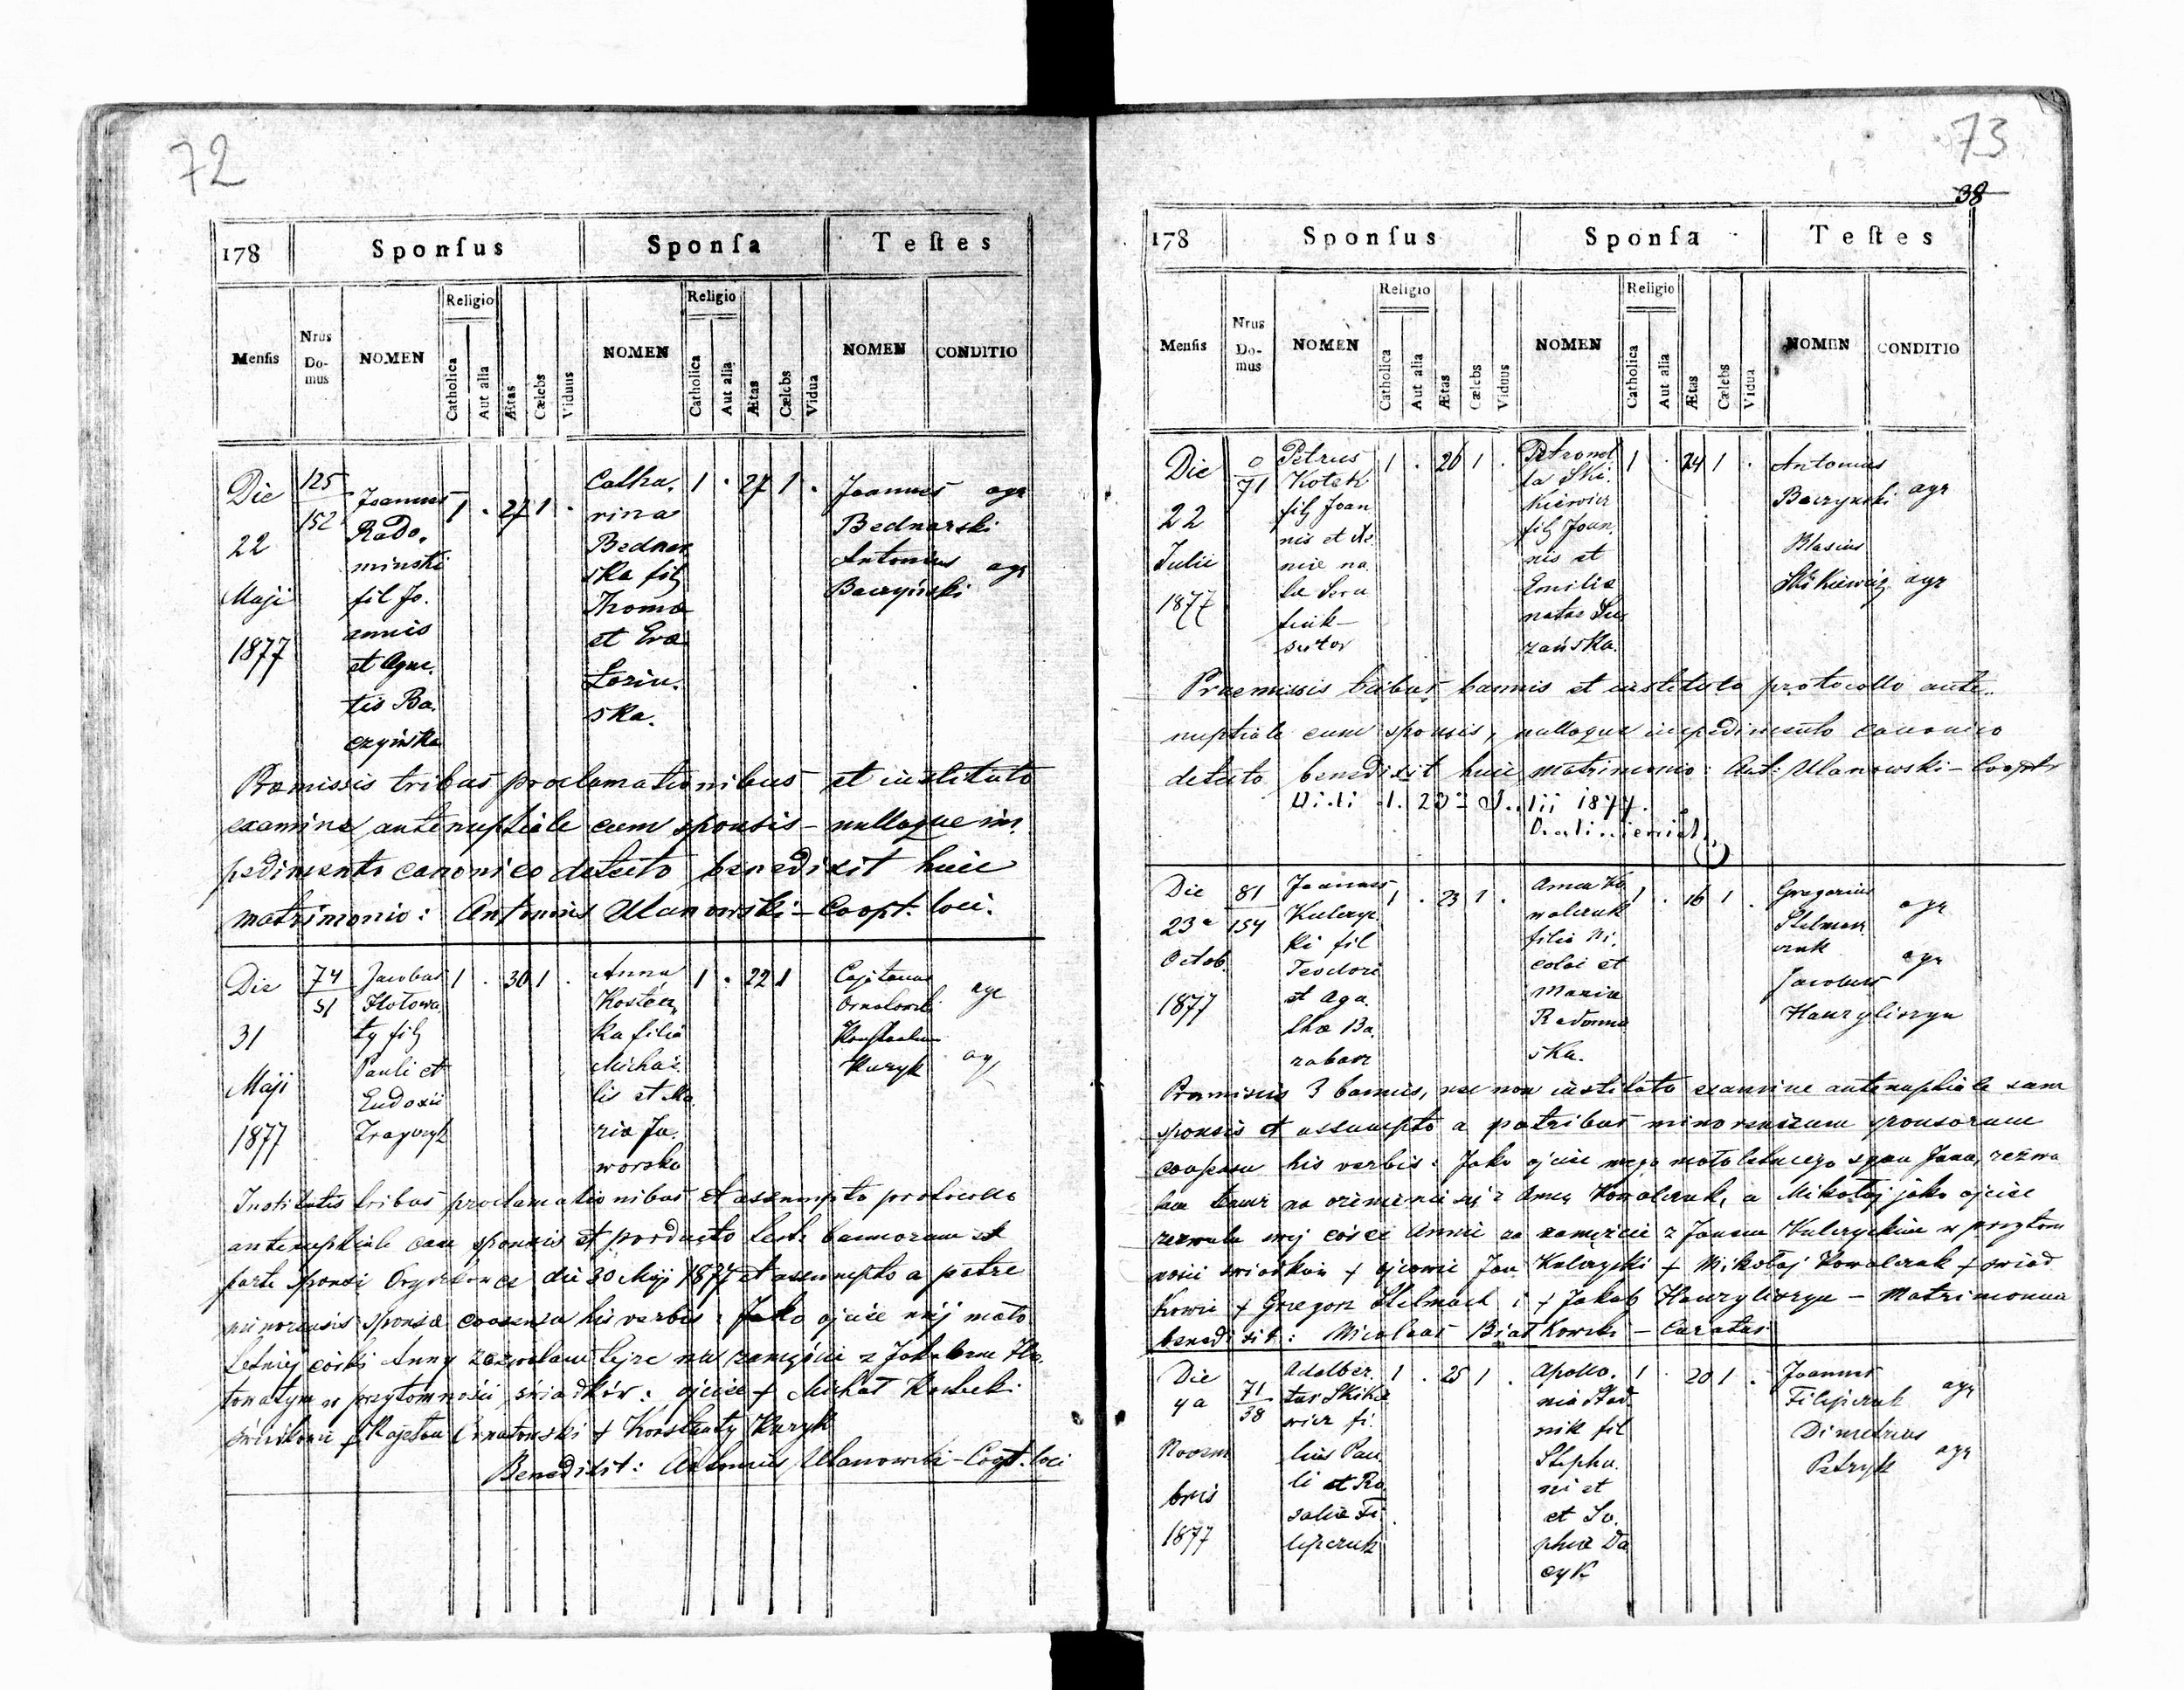 72
178 Sponſus Sponſa Teſtes
Menſis Nrus Do-mus NOMEN Religio Catholica Aut alia Ætas Cælebs Viduus NOMEN Religio Catholica Aut alia Ætas Cælebs Vidua NOMEN CONDITIO
Die 22 Maji 1877
125
152
Joannes
Rado.
minski
fil Jo.
annis
et Agne.
tis Ba.
czyńska
1 . 27 1 .
Catha.
rina
Bednar
ska filj
Thomæ
et Eva
Lozin.
ska.
1 . 27 1 .
Joannes agr
Bednarski
Antonius agr
Baczyński
Præmissis tribus proclamationibus et instituto
examine antenuptiale cum sponsis – nulloque im
pedimento canonico detecto benedixit huic
matrimonio: Antonius Ulanowski – Coopt. loci.
Die 31 Maji 1877
74
51
Jacobus
Hołowa
ty filj
Pauli et
Eudoxii
1 . 30 1 .
Anna
ka filia
Michaë
lis et Ma
ria Ja.
worska
1 . 22 1
Cajetanus agr
Ornatowski
Kuryk ag
Institutis tribus proclamationibus et assumpto protocollo
antenuptiale cum sponsis et producto teste bannorum et
parte sponsi die 20 Maji 1877 et assumpto a patre
minorensis sponsæ consensu his verbis: Jako ojciec mej mało
letniej córki Anny zezwalam tejze na zamęście z Jakobem Ho.
łowatym w przytomności świadków: ojciec + Michał
świadkowie + Kajetan Ornatowski + Konstanty Kuryk
Benedixit: Antonius Ulanowski – Coopt. loci
73
38
178 Sponſus Sponſa Teſtes
Menſis Nrus Do-mus NOMEN Religio Catholica Aut alia Ætas Cælebs Viduus NOMEN Religio Catholica Aut alia Ætas Cælebs Vidua NOMEN CONDITIO
Die 22 Julii 1877
0
71
Petrus
Kotek
filj Joan
nis et
na
sutor
1 . 26 1 .
Petronel
la Ski.
kiewicz
filj Joan.
nis et
Emilia
natae
zańska.
1 . 24 1 .
Antonius
Baczynski agr
Blasius
Skikiewicz agr
Præmissis tribus bannis et instituto protocollo ante.
nuptiale cum sponsis, nulloque impedimento canonico
detecto benedixit huic matrimonio: Ant: Ulanowski – Coopt
23 Julii 1877.
Die 23a Octob. 1877
81
154
Joannes
Kulczyc
ki fil
Teodori
et Aga
thæ Ba.
rabasz
1 . 23 1 .
Anna Ko
walczuk
filia Ni.
colai et
Maria
Radomin
ska.
1 . 16 1 .
Gregorius agr
Stelmasz
czuk
Jacobus agr
Hauryliszyn
Præmissis 3 bannis, nec non instituto examine antenuptiale cum
sponsis et assumpto a patribus minorennium sponsorum
consensu his verbis: Jako ojciec mego małoletniego syna Jana, zezwa
lam temuz na ożenienie się z Anną Kowalczuk, a Mikołaj jako ojciec
zezwala swej córce Annie na zamęście z Janem Kulczyckim w przytom
ności świadków + ojcowie Jan Kulczycki + Mikołaj Kowalczuk + świad
kowie + Grzegorz Stelmach i + Jakob Hauryliszyn – Matrimonium
benedixit: Nicolaus Białkowski – Curatus
Die 4a Novem bris 1877
71
38
Adalber.
tus Skikie
wicz fi.
lius Pau
li et Ro.
salia Fi.
lipczuk
1 . 25 1 .
Apollo.
nia
nik fil
Stepha.
ni et
et So.
phiæ Da
cyk
1 . 20 1 .
Joannes agr
Filipczuk
Dimetrius
Petryk agr